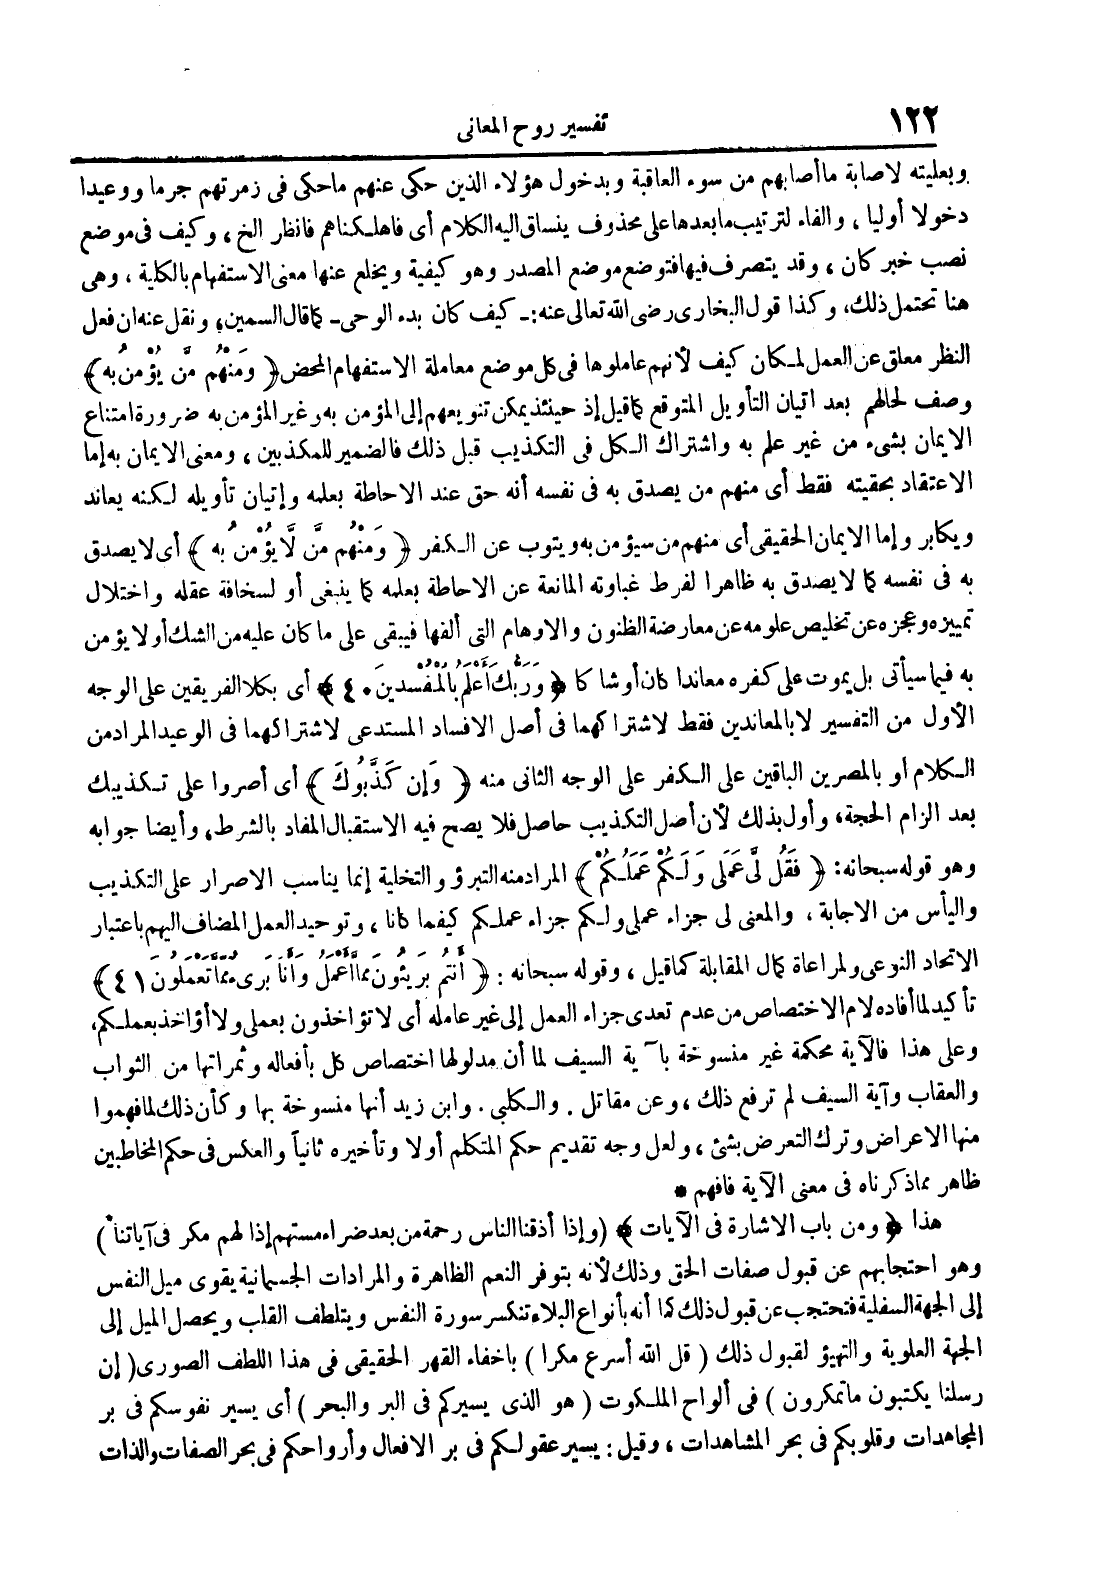 ١٢٢
تفسير روح المعانى
وبعليته لاصابة ماأصابهم من سوء العاقبة وبدخول هؤلاء الذين حكى عنهم ماحكى فى زمرتهم جرما ووعيدا
دخولا أوليا ، والفاء لترتيب مابعدها على محذوف ينساق اليه الكلام أى فاهلكناهم فانظر الخ ، وكيف فى موضع
نصب خبر كان ، وقد يتصرف فيها فتوضع موضع المصدر وهو كيفية ويخلع عنها معنى الاستفهام بالكلية ، وهى
هنا تحتمل ذلك، وكذا قول البخارى رضى الله تعالى عنه :ـ كيف كان بدء الوحى ـ كما قال السمين، ونقل عنه ان فعل
النظر معلق عن العمل لمكان كيف لأنهم عاملوها فى كل موضع معاملة الاستفهام المحض ﴿ وَمِنْهُم مَّن يُؤْمِنُ بِهِ ﴾
وصف لحالهم بعد اتيان التأويل المتوقع كما قيل إذ حينئذ يمكن تنويعهم إلى المؤمن به وغير المؤمن به ضرورة امتناع
الايمان بشىء من غير علم به واشتراك الكل فى التكذيب قبل ذلك فالضمير للمكذبين ، ومعنى الايمان به إما
الاعتقاد بحقيته فقط أى منهم من يصدق به فى نفسه أنه حق عند الاحاطة بعلمه وإتيان تأويله لكنه يعاند
ويكابر وإما الايمان الحقيقى أى منهم من سيؤمن به ويتوب عن الكفر ﴿ وَمِنْهُم مَّن لَّا يُؤْمِنُ بِهِ ﴾ أى لا يصدق
به فى نفسه كما لا يصدق به ظاهرا لفرط غباوته المانعة عن الاحاطة بعلمه كما ينبغى أو لسخافة عقله واختلال
تمييزه وعجزه عن تخليص علومه عن معارضة الظنون والاوهام التى ألفها فيبقى على ما كان عليه من الشك أو لا يؤمن
به فيما سيأتى بل يموت على كفره معاندا كان أو شاكا ﴿ وَرَبُّكَ أَعْلَمُ بِالْمُفْسِدِينَ ٤٠ ﴾ أى بكلا الفريقين على الوجه
الأول من التفسير لا بالمعاندين فقط لاشتراكهما فى أصل الافساد المستدعى لاشتراكهما فى الوعيد المراد من
الكلام أو بالمصرين الباقين على الكفر على الوجه الثانى منه ﴿ وَإِن كَذَّبُوكَ ﴾ أى أصروا على تكذيبك
بعد الزام الحجة، وأول بذلك لأن أصل التكذيب حاصل فلا يصح فيه الاستقبال المفاد بالشرط، وأيضا جوابه
وهو قوله سبحانه: ﴿ فَقُل لِّى عَمَلِى وَلَكُمْ عَمَلُكُمْ ﴾ المراد منه التبرؤ والتخلية إنما يناسب الاصرار على التكذيب
واليأس من الاجابة ، والمعنى لى جزاء عملى ولكم جزاء عملكم كيفما كانا ، وتوحيد العمل المضاف اليهم باعتبار
الاتحاد النوعى ولمراعاة كمال المقابلة كما قيل ، وقوله سبحانه : ﴿ أَنتُم بَرِيئُونَ مِمَّا أَعْمَلُ وَأَنَا بَرِىءٌ مِّمَّا تَعْمَلُونَ ٤١ ﴾
تأكيد لما أفاده لام الاختصاص من عدم تعدى جزاء العمل إلى غير عامله أى لا تؤاخذون بعملى ولا أؤاخذ بعملكم،
وعلى هذا فالآية محكمة غير منسوخة بآية السيف لما أن مدلولها اختصاص كل بأفعاله وثمراتها من الثواب
والعقاب وآية السيف لم ترفع ذلك ، وعن مقاتل . والكلبى . وابن زيد أنها منسوخة بها وكأن ذلك لما فهموا
منها الاعراض وترك التعرض بشئ ، ولعل وجه تقديم حكم المتكلم أولا وتأخيره ثانياً والعكس فى حكم المخاطبين
ظاهر مما ذكرناه فى معنى الآية فافهم *
هذا ﴿ ومن باب الاشارة فى الآيات ﴾ (وإذا أذقنا الناس رحمة من بعد ضراء مستهم إذا لهم مكر فى آياتنا )
وهو احتجابهم عن قبول صفات الحق وذلك لأنه بتوفر النعم الظاهرة والمرادات الجسمانية يقوى ميل النفس
إلى الجهة السفلية فتحتجب عن قبول ذلك كما أنه بأنواع البلاء تنكسر سورة النفس ويتلطف القلب ويحصل الميل إلى
الجهة العلوية والتهيؤ لقبول ذلك ( قل الله أسرع مكرا ) باخفاء القهر الحقيقى فى هذا اللطف الصورى ( إن
رسلنا يكتبون ما تمكرون ) فى ألواح الملكوت ( هو الذى يسيركم فى البر والبحر ) أى يسير نفوسكم فى بر
المجاهدات وقلوبكم فى بحر المشاهدات ، وقيل : يسير عقولكم فى بر الافعال وأرواحكم فى بحر الصفات والذات